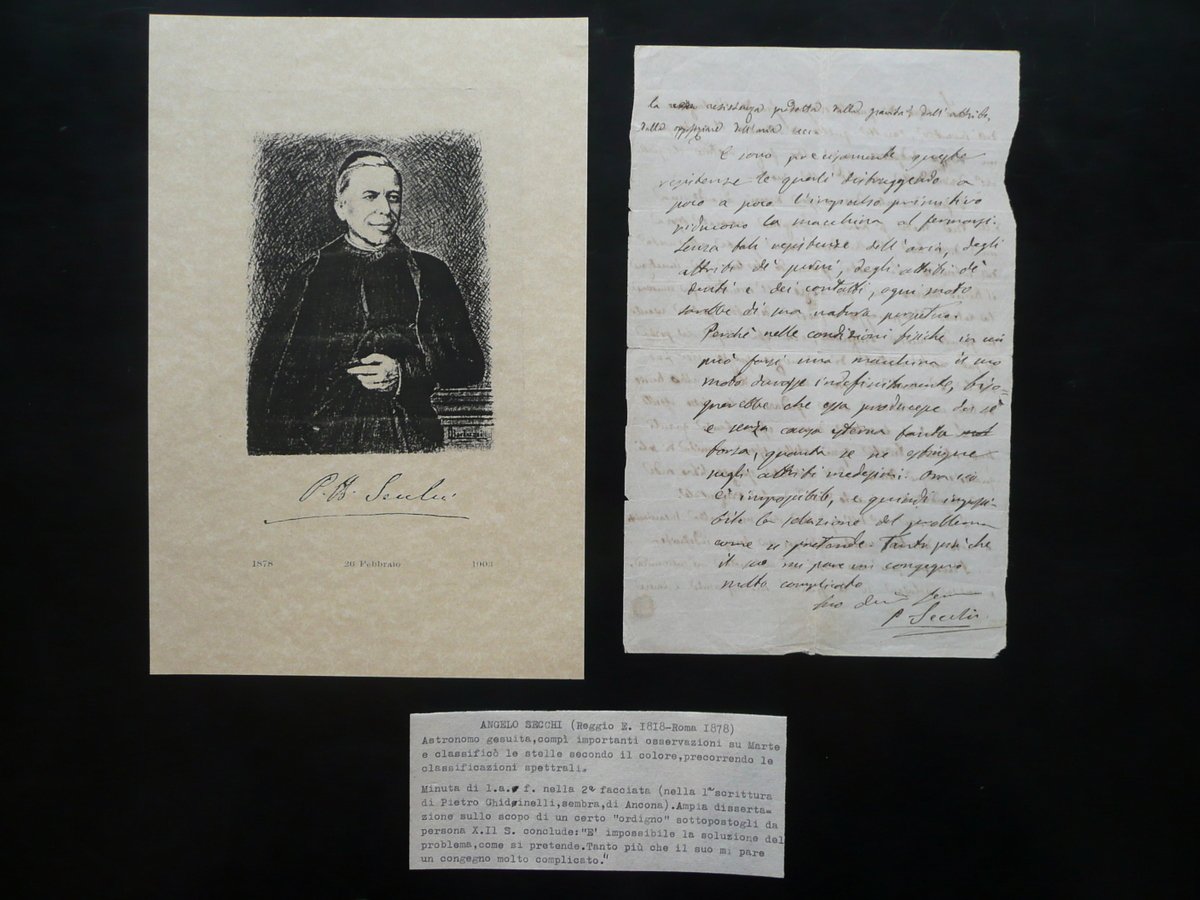 P. A. Secchi
1878 26 Febbraio 1903
la resistenza prodotta dalla gravità, dall'attrito,
dalla opposizione dell'aria ecc.
E sono precisamente queste
resistenze le quali distruggendo a
poco a poco l'impulso primitivo
riducono la macchina al fermarsi.
Senza tali resistenze dell'aria, degli
attriti de' perni, degli attriti de'
denti e dei contatti, ogni moto
sarebbe di sua natura perpetuo.
Perchè nelle condizioni fisiche in cui
può farsi una macchina il suo
moto durasse indefinitamente, biso=
gnerebbe che essa producesse da sè
e senza causa esterna tanta
forza, quanta se ne estingue
negli attriti medesimi. Ora ciò
è impossibile, e quindi impossi
bile la soluzione del problema
come si pretende. Tanto più che
il suo mi pare un congegno
molto complicato
Suo
P Secchi
ANGELO SECCHI (Reggio E. 1818-Roma 1878)
Astronomo gesuita,compì importanti osservazioni su Marte
e classificò le stelle secondo il colore,precorrendo le
classificazioni spettrali.
Minuta di l.a. f. nella 2a facciata (nella 1a scrittura
di Pietro Ghidinelli,sembra,di Ancona).Ampia disserta-
zione sullo scopo di un certo "ordigno" sottopostogli da
persona X.Il S. conclude:"E' impossibile la soluzione del
problema,come si pretende.Tanto più che il suo mi pare
un congegno molto complicato."